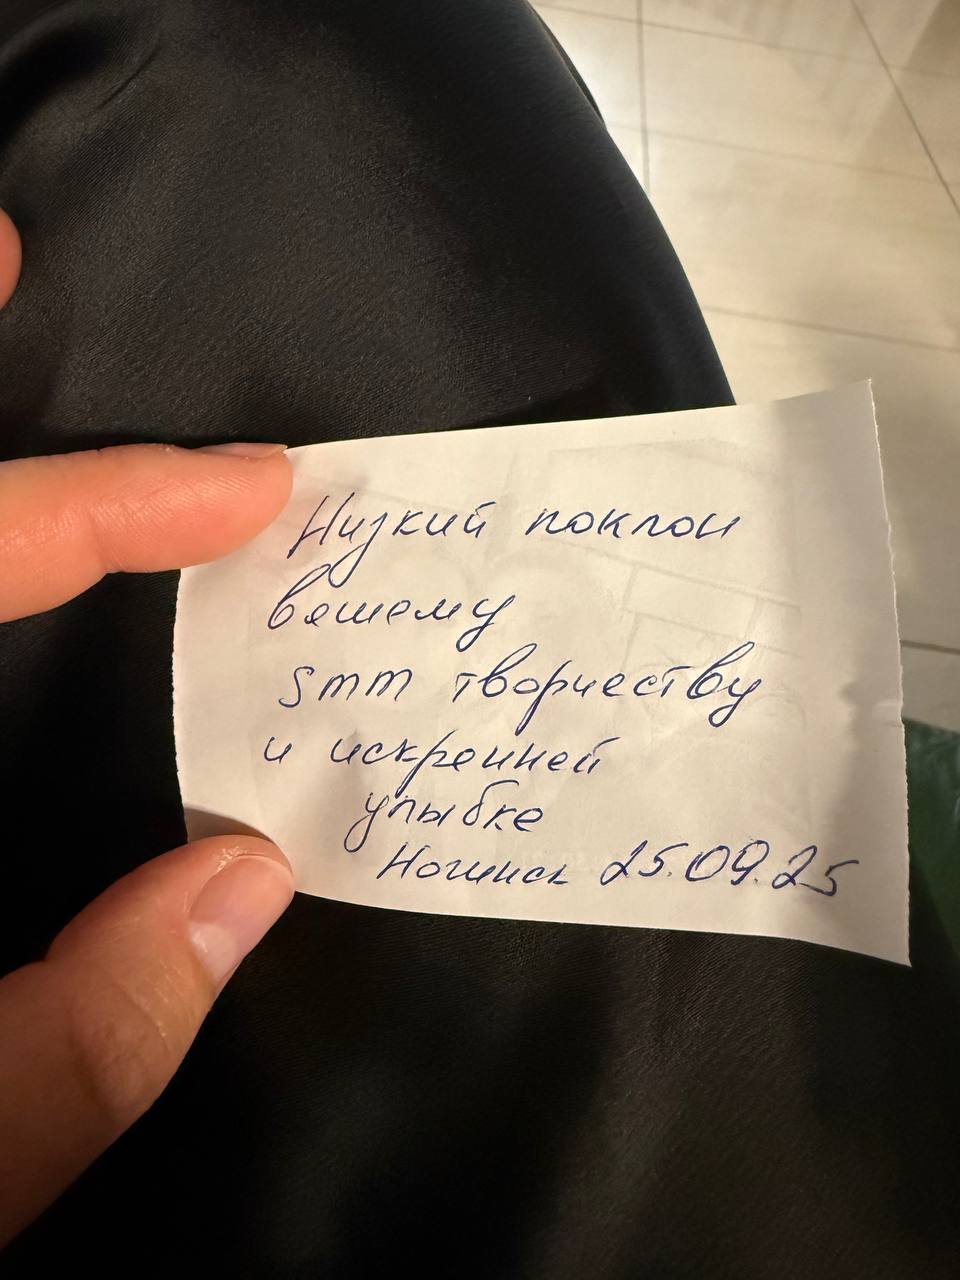 Низкий поклон
вашему
smm творчеству
и искренней
улыбке
Ногинск 25.09.25